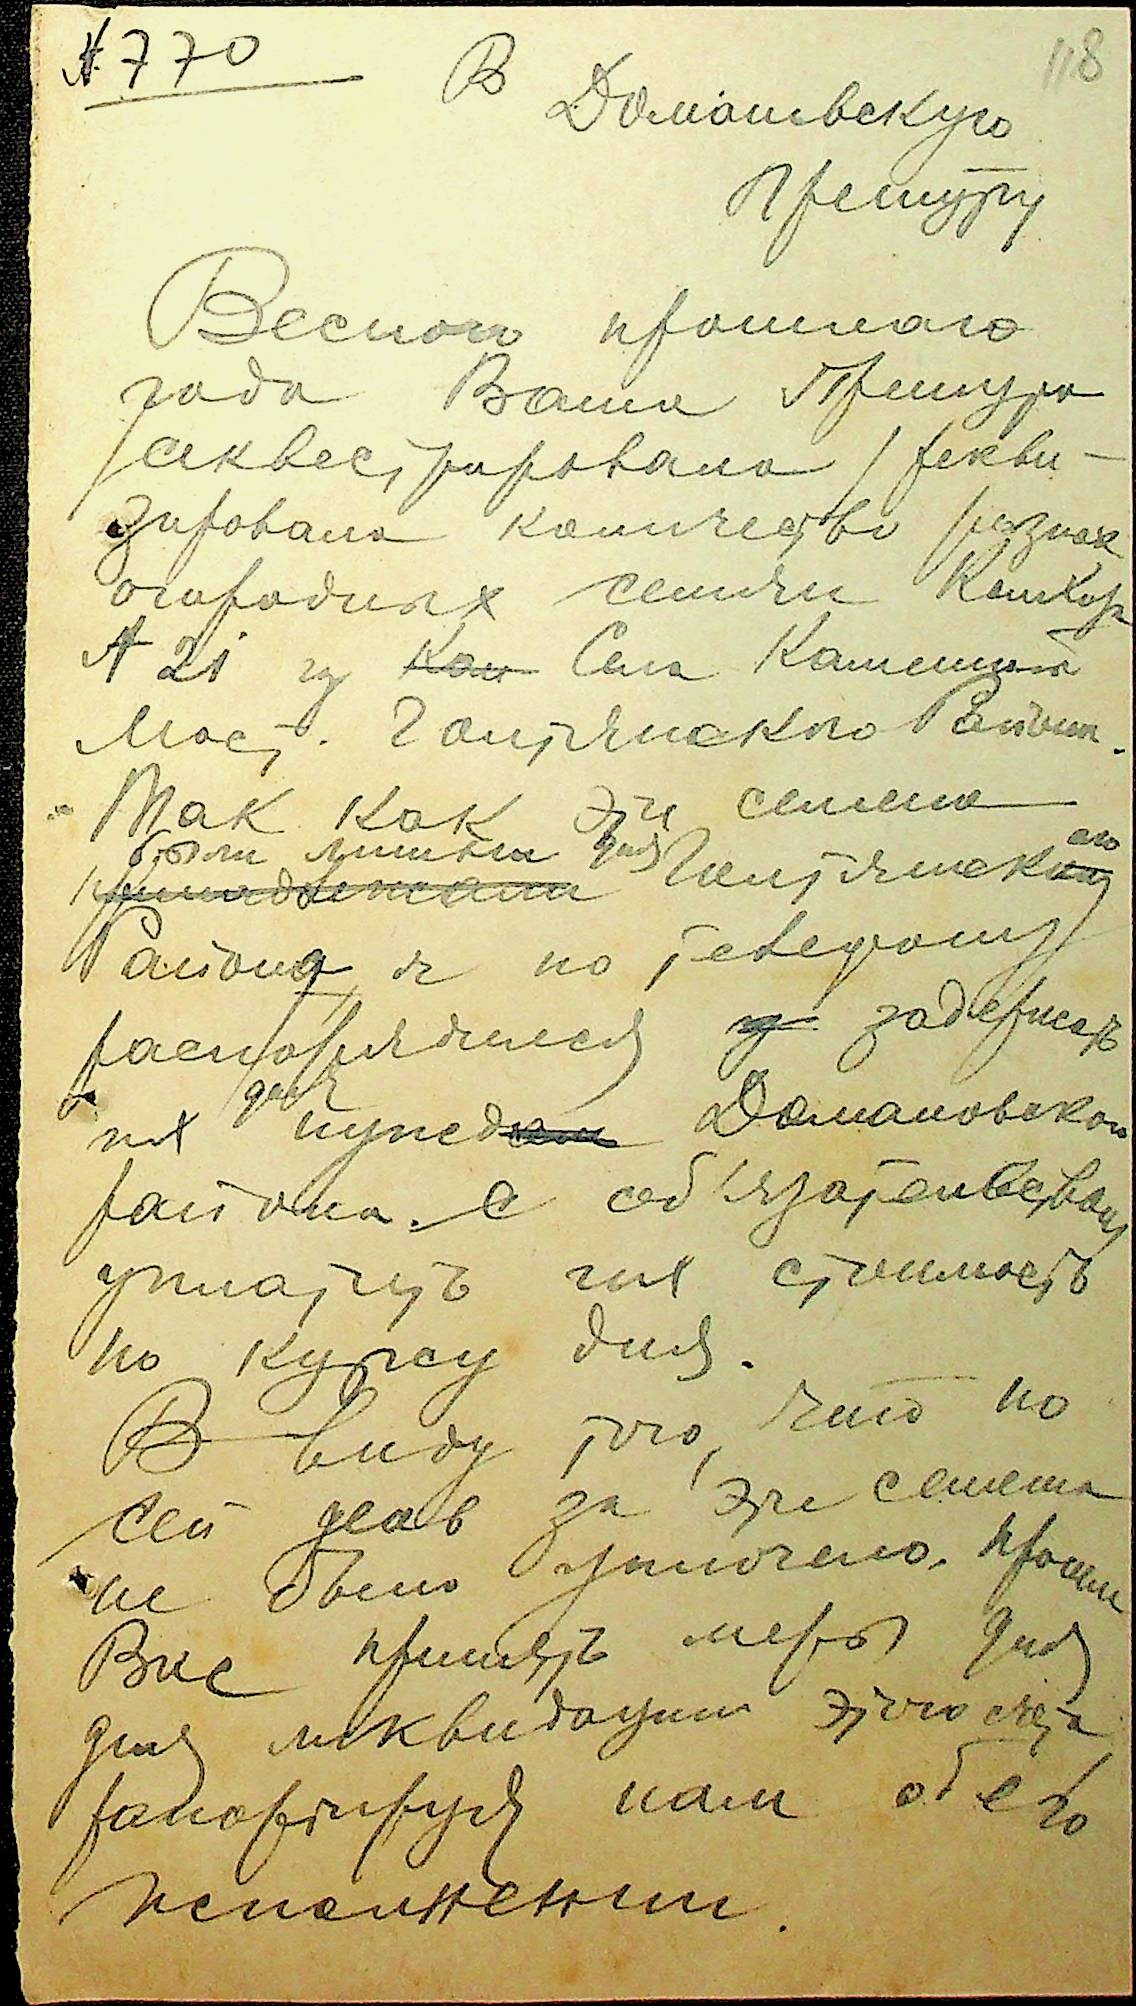 № 770
118
В Доманевскую
Претуру
Весною прошлаго
года Ваша Претура
секвестрировала /рекви-
зировала количество разных
огородных семян
№ 21 из Кам Села Каменный
Мост. Голтянского Района.
Так как эти семена
были лишния для
принадлежали Голтянского
Района, я по телефону
распорядился задержать
их для нужд Домановского
района. С обязательством
уплатить их стоимость
по курсу дня.
В виду того, что по
сей день за эти семена
не было уплочено, прошу
Вас принять меры для
для ликвидации этого счета
рапортируя нам об его
исполнении.